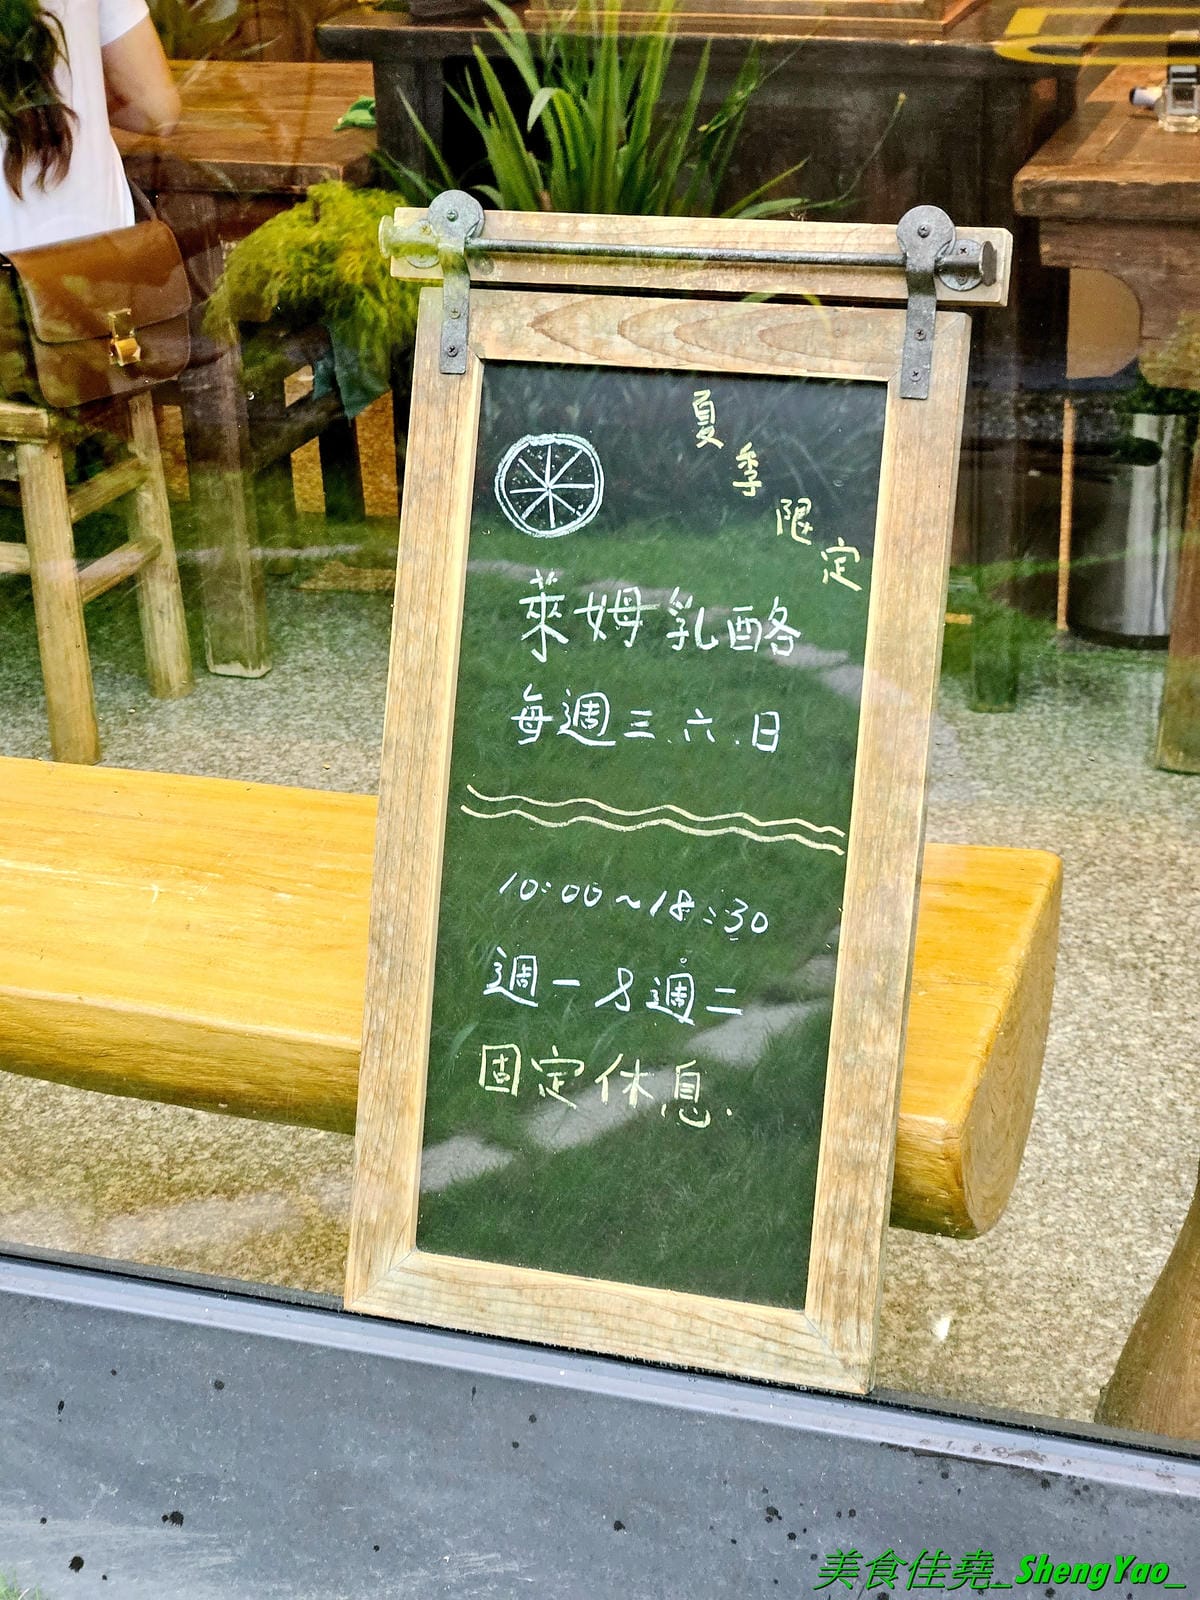 夏季限定
萊姆乳酪
每週三.六.日
10:00~18:30
週一&週二
固定休息.
美食佳堯_ShengYao_